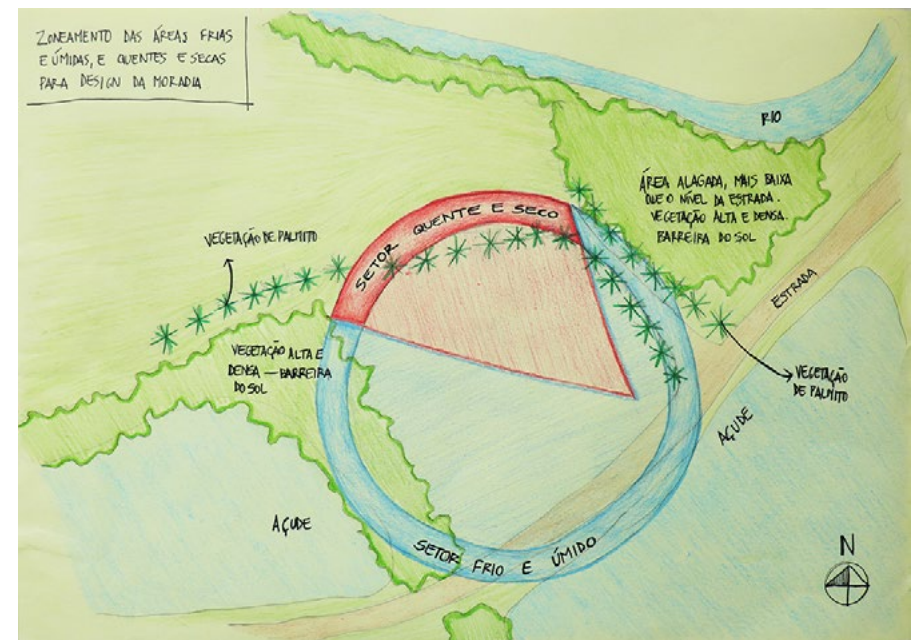 ZONEAMENTO DAS ÁREAS FRIAS
E ÚMIDAS, E QUENTES E SECAS
PARA DESIGN DA MORADIA
RIO
ÁREA ALAGADA, MAIS BAIXA
QUE O NÍVEL DA ESTRADA.
VEGETAÇÃO ALTA E DENSA.
BARREIRA DO SOL
SETOR QUENTE E SECO
VEGETAÇÃO DE PALMITO
ESTRADA
VEGETAÇÃO ALTA E
DENSA — BARREIRA
DO SOL
VEGETAÇÃO
DE PALMITO
AÇUDE
AÇUDE
SETOR FRIO E ÚMIDO
N